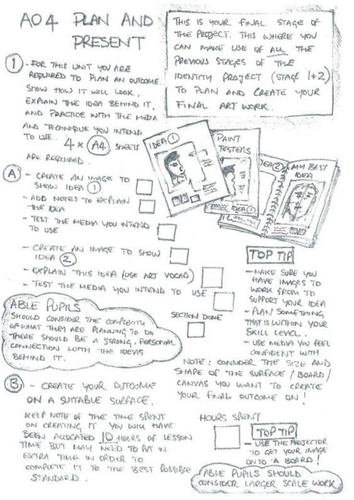 AO4 PLAN AND
PRESENT
THIS IS YOUR FINAL STAGE OF
THE PROJECT. THIS WHERE YOU
CAN MAKE USE OF ALL THE
PREVIOUS STAGES OF THE
IDENTITY PROJECT (STAGE 1+2)
TO PLAN AND CREATE YOUR
FINAL ART WORK.
① - FOR THIS UNIT YOU ARE
REQUIRED TO PLAN AN OUTCOME.
SHOW HOW IT WILL LOOK,
EXPLAIN THE IDEA BEHIND IT,
AND PRACTICE WITH THE MEDIA
AND TECHNIQUE YOU INTEND
TO USE. 4 × A4 SHEETS
ARE REQUIRED.
IDEA ①
PAINT
TESTERS
IDEA ①
IDEA ②
MY BEST
IDEA
Ⓐ - CREATE AN IMAGE TO
SHOW IDEA ①
- ADD NOTES TO EXPLAIN
THE IDEA
- TEST THE MEDIA YOU INTEND
TO USE
- CREATE AN IMAGE TO SHOW
IDEA ②
- EXPLAIN THIS IDEA (USE ART VOCAB)
- TEST THE MEDIA YOU INTEND TO USE
SECTION DONE
TOP TIP
- MAKE SURE YOU
HAVE IMAGES TO
WORK FROM TO
SUPPORT YOUR IDEA
- PLAN SOMETHING
THAT IS WITHIN YOUR
SKILL LEVEL.
- USE MEDIA YOU FEEL
CONFIDENT WITH
ABLE PUPILS
SHOULD CONSIDER THE COMPLEXITY
OF WHAT THEY ARE PLANNING TO DO
THERE SHOULD BE A STRONG, PERSONAL
CONNECTION WITH THE IDEAS
BEHIND IT.
NOTE: CONSIDER THE SIZE AND
SHAPE OF THE SURFACE / BOARD /
CANVAS YOU WANT TO CREATE
YOUR FINAL OUTCOME ON!
Ⓑ - CREATE YOUR OUTCOME
ON A SUITABLE SURFACE.
KEEP NOTE OF THE TIME SPENT
ON CREATING IT. YOU WILL HAVE
BEEN ALLOCATED 10 HOURS OF LESSON
TIME BUT MAY NEED TO PUT IN
EXTRA TIME IN ORDER TO
COMPLETE IT TO THE BEST POSSIBLE
STANDARD.
HOURS SPENT
TOP TIP
- USE THE PROJECTOR
TO GET YOUR IMAGE
ONTO A BOARD!
ABLE PUPILS SHOULD
CONSIDER LARGER SCALE WORK.